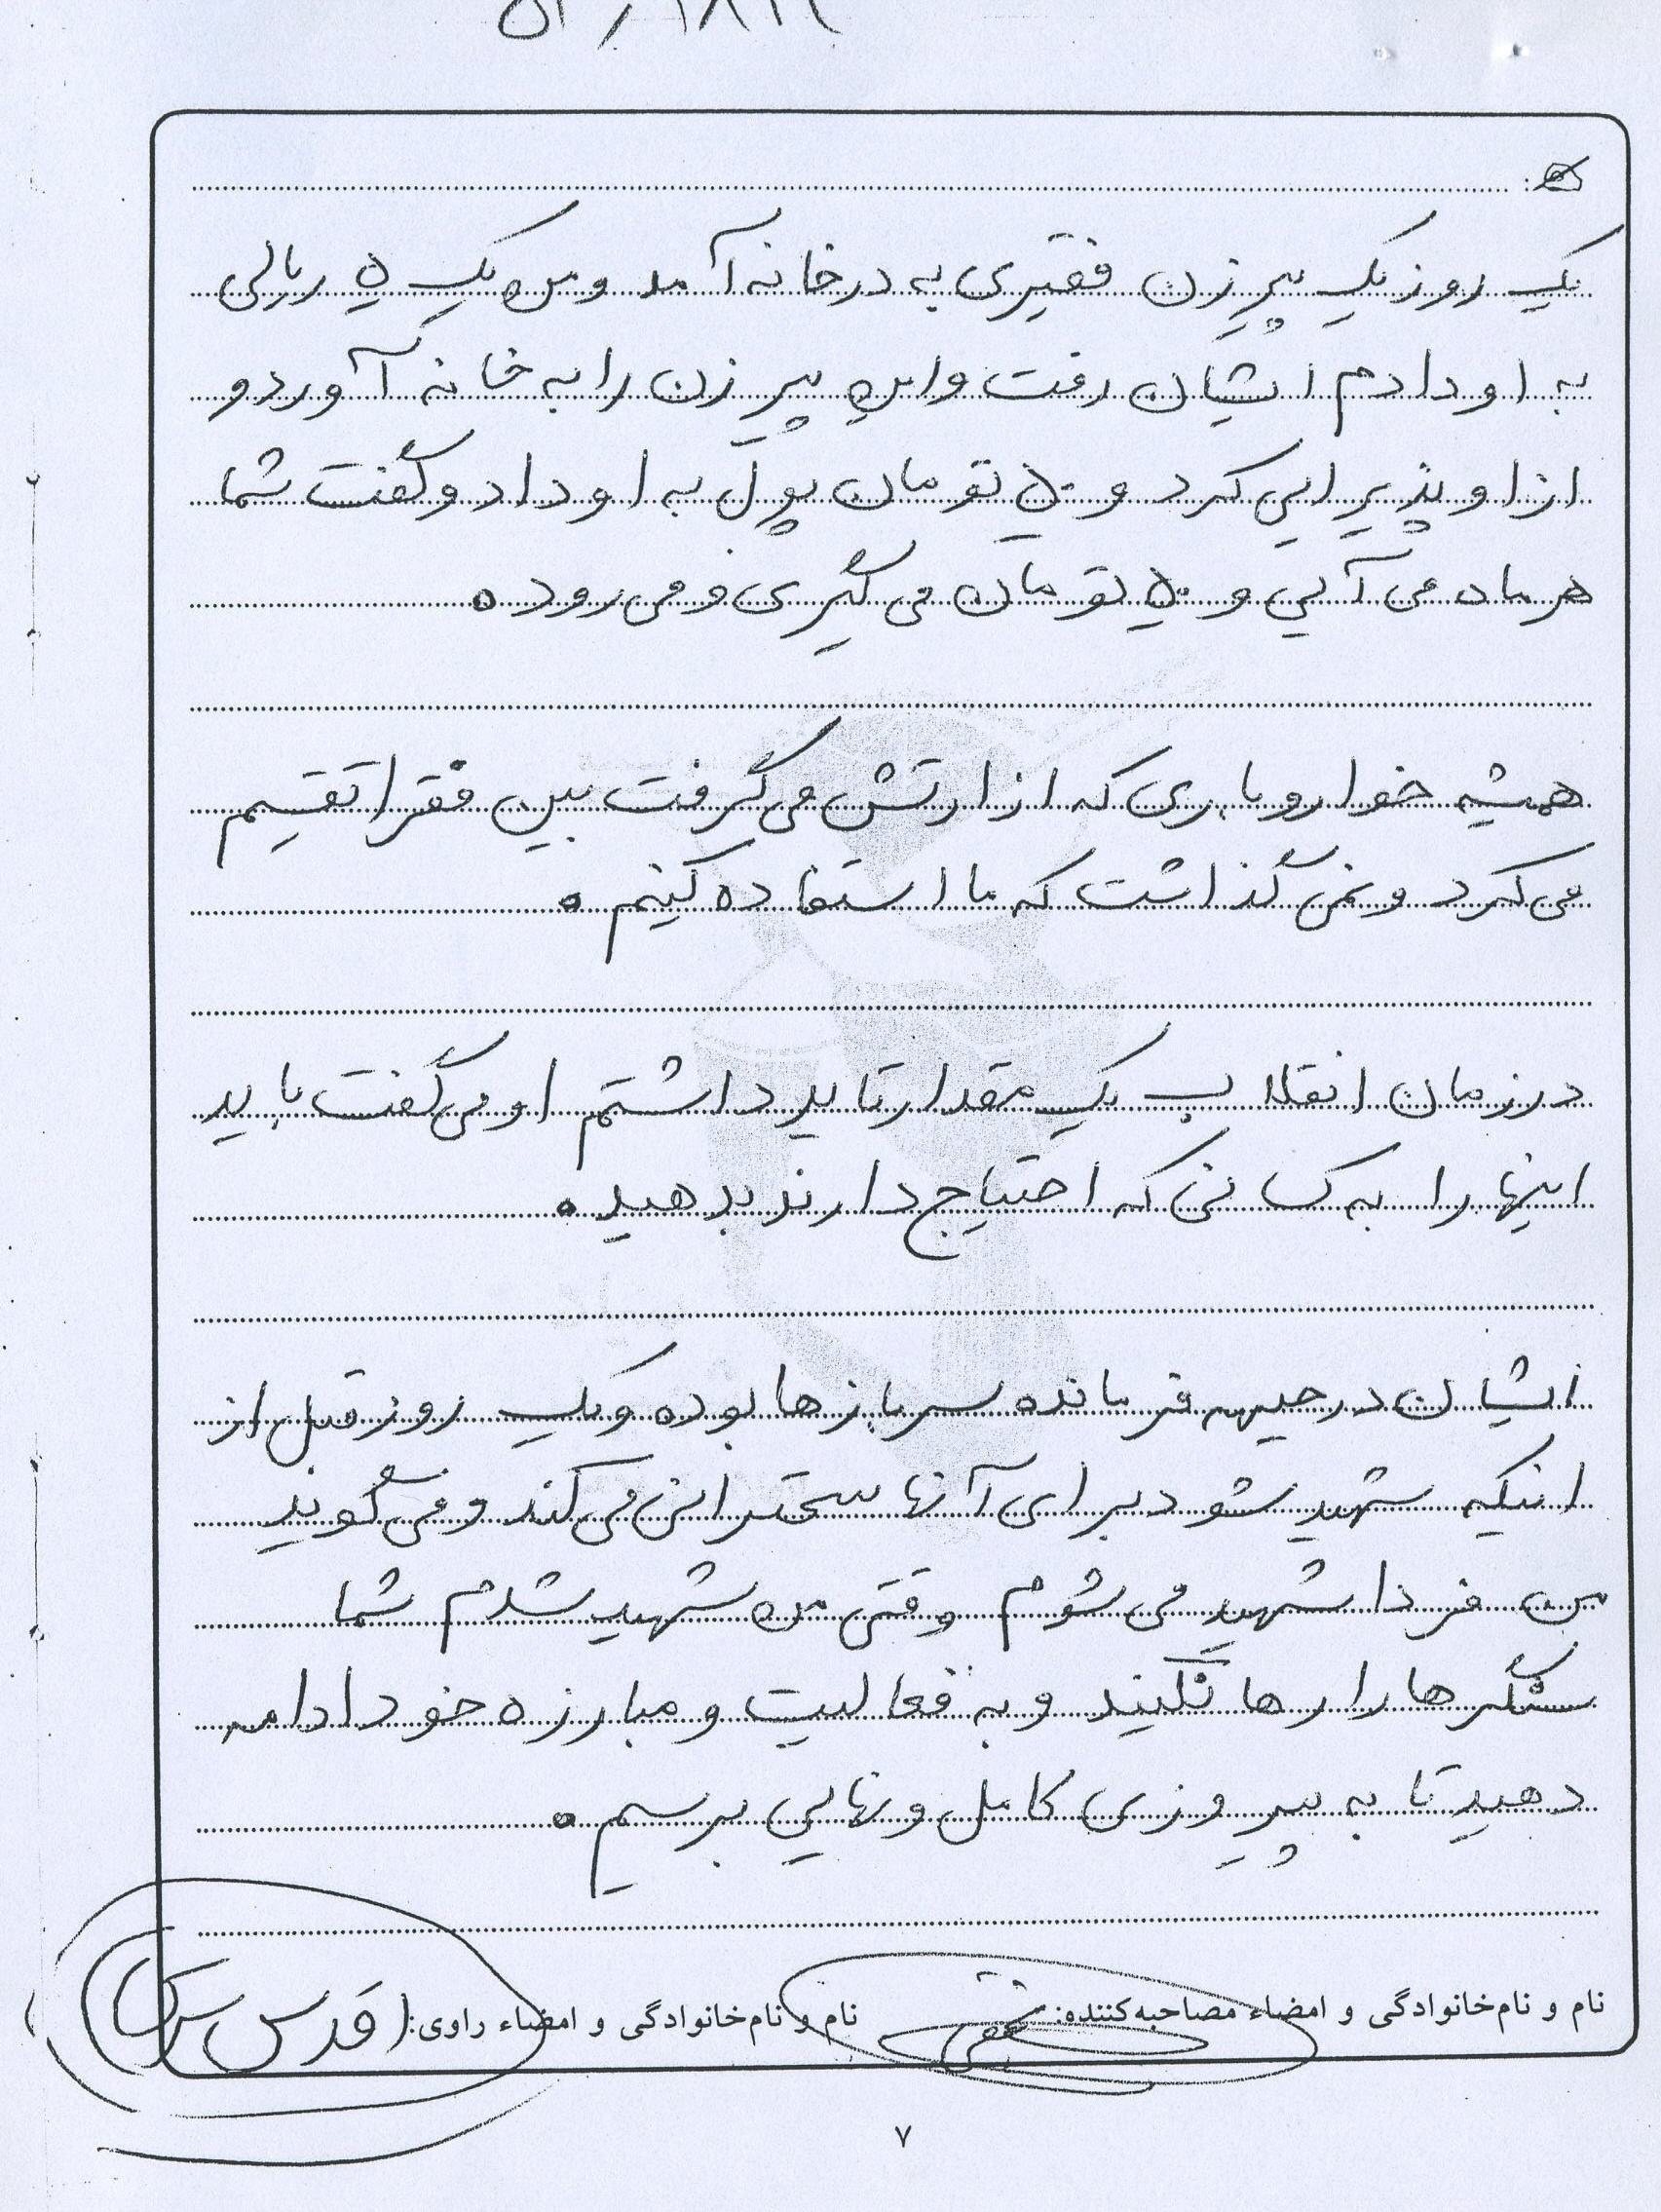 یک روز یک پیرزن فقیری به در خانه آمد و من یک ۵ ریالی
به او دادم ایشان رفت و این پیرزن را به خانه آورد و
از او پذیرایی کرد و ۵۰ تومان پول به او داد و گفت شما
هر ماه می آیی و ۵۰ تومان می گیری و می رود.
همیشه خواروباری که از ارتش می گرفت بین فقرا تقسیم
می کرد و نمی گذاشت که ما استفاده کنیم.
در زمان انقلاب یک مقدار تاید داشتم او می گفت باید
اینها را به کسانی که احتیاج دارند بدهید.
ایشان در جبهه فرمانده سربازها بوده و یک روز قبل از
اینکه شهید شود برای آنها سخنرانی می کند و می گوید
من فردا شهید می شوم وقتی من شهید شدم شما
سنگرها را رها نکنید و به فعالیت و مبارزه خود ادامه
دهید تا به پیروزی کامل و نهایی برسیم.
نام و نام‌خانوادگی و امضاء مصاحبه‌کننده: نام و نام‌خانوادگی و امضاء راوی: قدس
۷